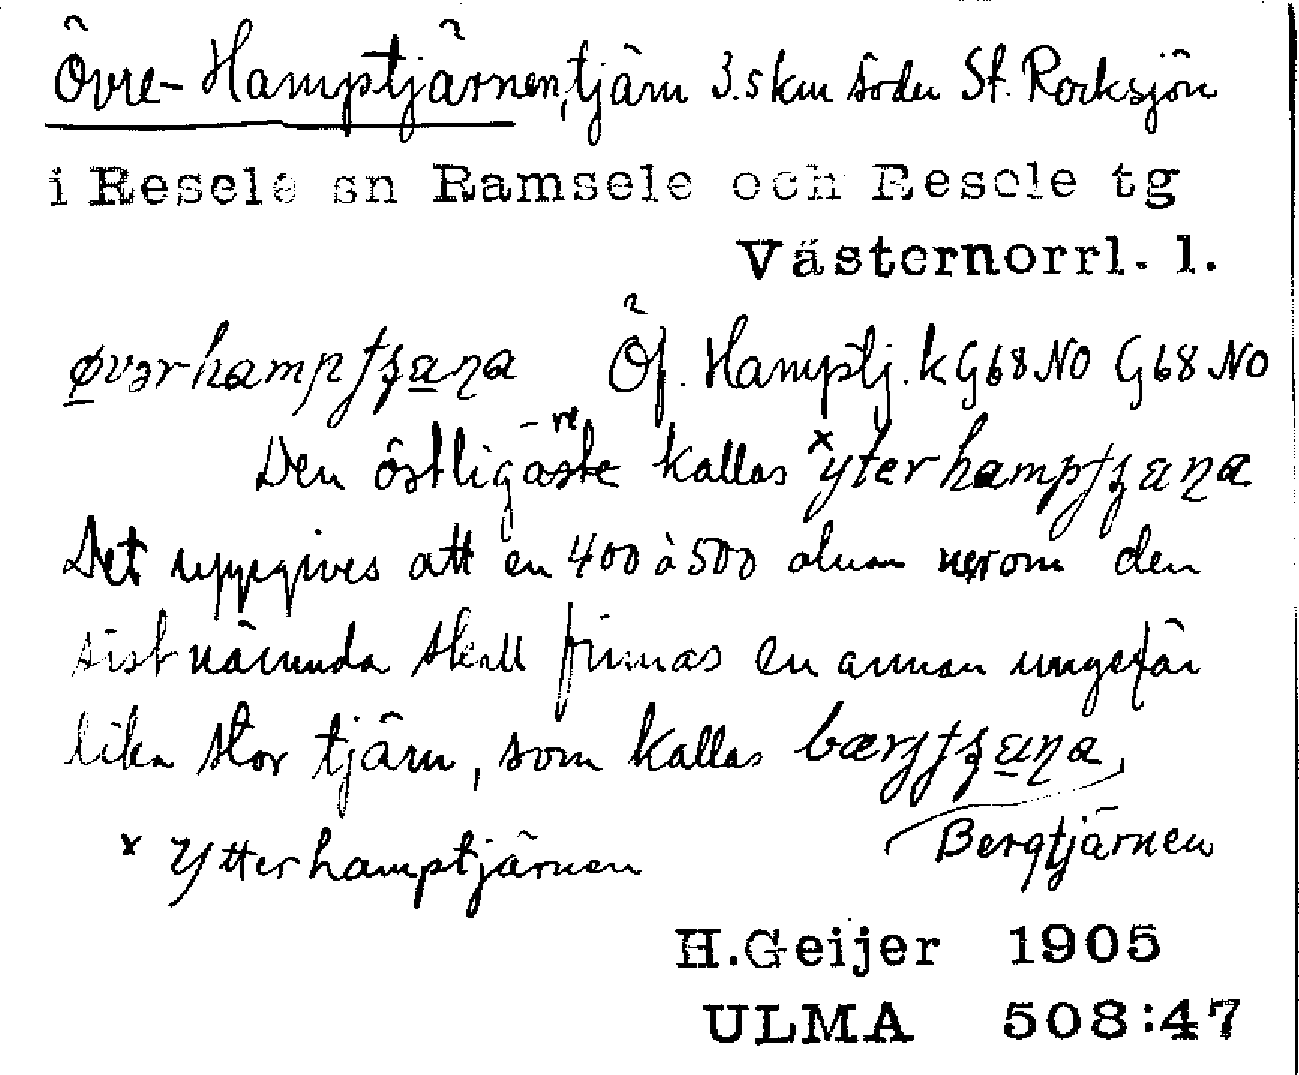 Övre-Hamptjärnen, tjärn 3.5 km söder St. Rocksjön
i Resele sn Ramsele och Resele tg
Västernorrl. l.
Öf. Hamptj. k G68 NO G68 NO
Den östligaste -re kallas x
Det uppgives att en 400 à 500 alnar nerom den
sistnämnda skall finnas en annan ungefär
lika stor tjärn, som kallas
x Ytterhamptjärnen Bergtjärnen
H.Geijer 1905
ULMA 508:47